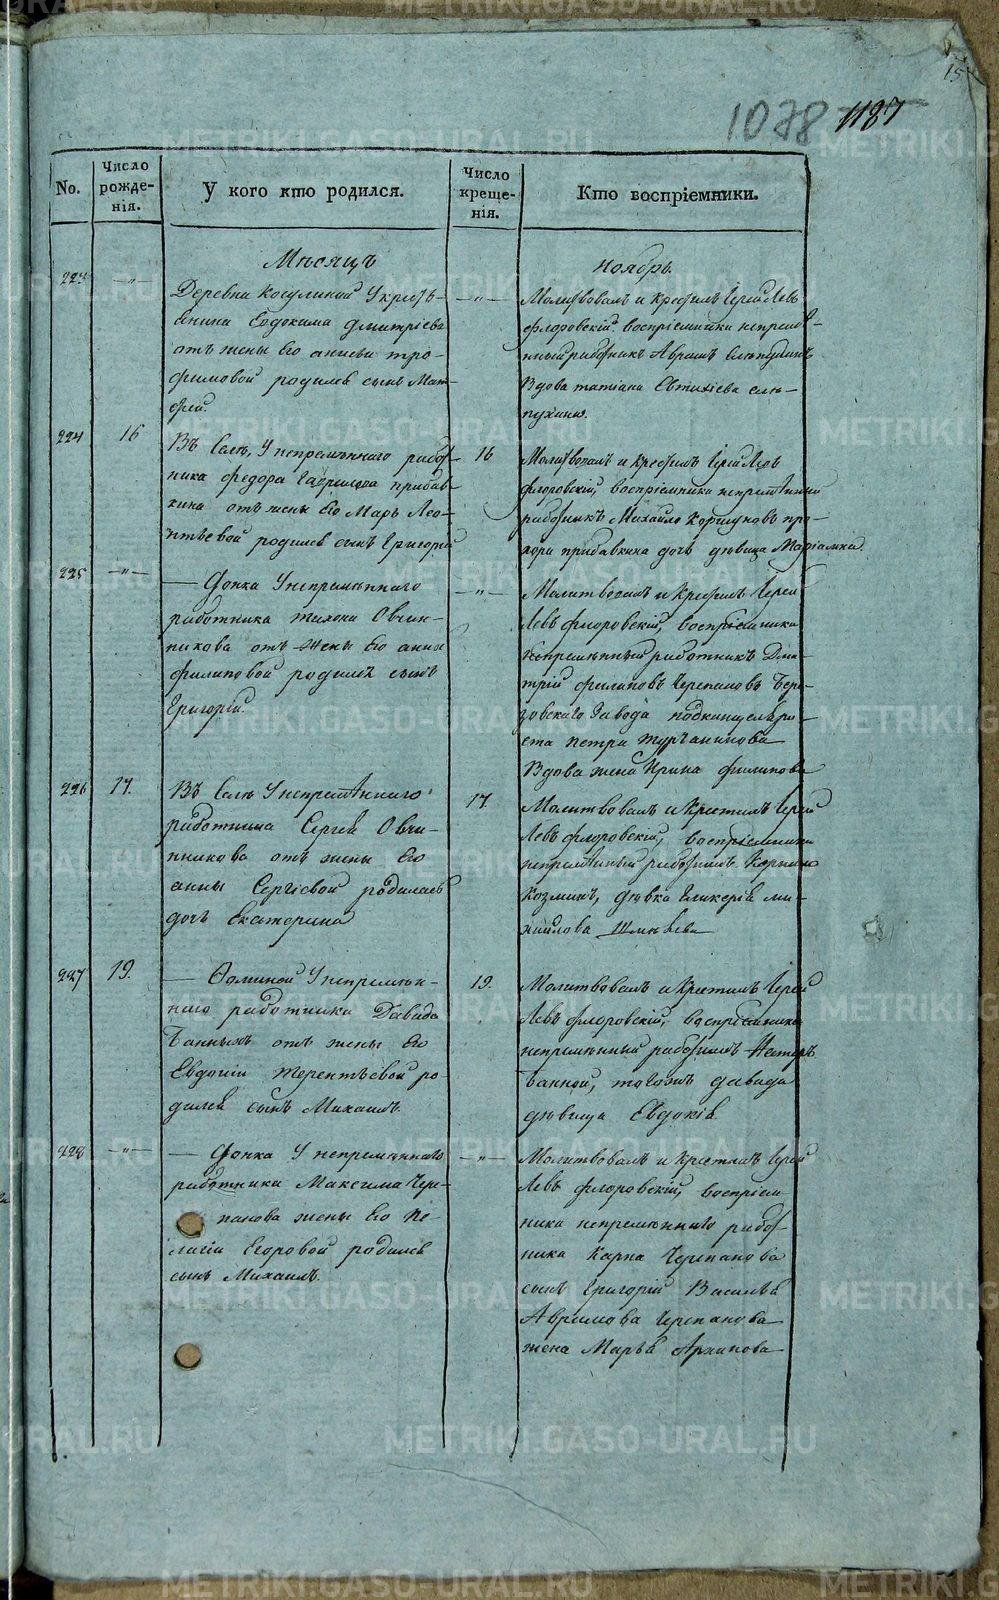 15
1078 1187
No.
Число рожде-нія.
У кого кто родился.
Число креще-нія.
Кто воспріемники.
Мѣсяцъ
Ноябрь.
223
—"—
Деревни Косулиной У крестья-
нина Евдокима Дмитріева
отъ жены Его анисьи тро-
фимовой родился сынъ Мат-
фей.
—"—
Молитвовалъ и крестилъ Іерей Левъ
флоровскій. воспріемники непремѣ-
нный работникъ Аврамъ
Вдова татіана Евтихіева слѣ-
пухина.
224
16
Въ Селѣ, У непремѣннаго работ-
ника федора Гаврилова прибав-
кина отъ жены Его Марьѣ Лео-
нтьевой родился сынъ Григорій
16
Молитвовалъ и крестилъ Іерей Левъ
флоровскій, воспріемники непремѣнный
работникъ Михайло Коршуновъ про-
хора прибавкина дочь дѣвица Маріамна.
225
—"—
— Фомка У непремѣннаго
работника тихона Овчин-
никова отъ жены Его анны
филиповой родился сынъ
Григорій.
—"—
Молитвовалъ и крестилъ Іерей
Левъ флоровскій, воспріемники
непремѣнный работникъ Дми-
трій филиповъ Черепановъ Бере-
зовскаго Завода подканцеляри-
ста петра турчанинова
Вдова жена Ирина филипова
226
17.
Въ Селѣ У непремѣннаго
работника Сергея Овчи-
нникова отъ жены Его
анны Сергіевой родилась
дочь Екатерина
17.
Молитвовалъ и крестилъ Іерей
Левъ флоровскій, воспріемники
непремѣнный работникъ
Козминъ, дѣвка гликерія ми-
хайлова
227
19.
— У непремѣн-
наго работника Давида
Банныхъ отъ жены Его
Евдокіи терентьевой ро-
дился сынъ Михаилъ.
19.
Молитвовалъ и крестилъ Іерей
Левъ флоровскій, воспріемники
непремѣнный работникъ Несторъ
банной, тогожъ давида
дѣвица Евдокія
228
—"—
— Фомка У непремѣннаго
работника Максима Чере-
панова жены Его Пе-
лагіи Егоровой родился
сынъ Михаилъ.
—"—
Молитвовалъ и крестилъ Іерей
Левъ флоровскій, воспріем-
ники непремѣннаго работ-
ника Карпа Черепанова
сынъ Григорій Василья
Аврамова Черепанова
жена Марья Архипова